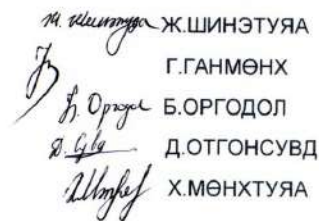 Ж.ШИНЭТУЯА
Г.ГАНМӨНХ
Б.ОРГОДОЛ
Д.ОТГОНСУВД
Х.МӨНХТУЯА